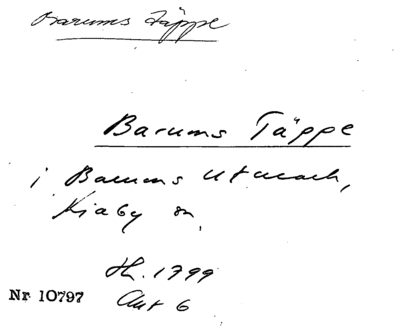 Barums Täppe
Barums Täppe
i Barums utmark,
Kiaby sn,
Hh. 1799
Akt 6
Nr 10797